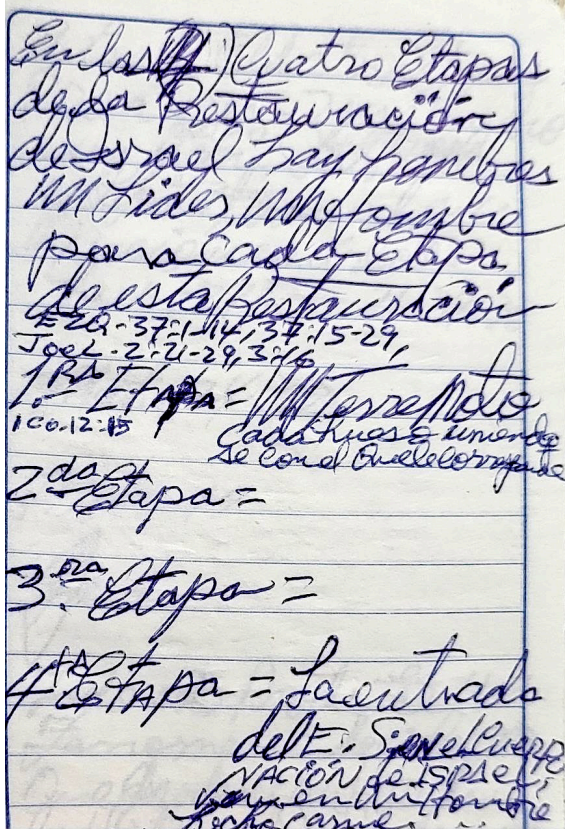 En las (4) Cuatro Etapas
de la Restauración
de Israel hay hombres
un Lider, un Hombre
para Cada Etapa
de esta Restauración
EZQ-37:1-14, 37:15-29,
JoeL-2:21-29, 3:16
1.RA Etapa = Un Terremoto
1 Co.12:15 Cada hueso uniendo
se con el Que le corresponde
2da Etapa =
3.ra Etapa =
4ta Etapa = La entrada
del E. S. en el Cuerpo
NACIÓN de ISRAEL,
en un Hombre
hecho carne